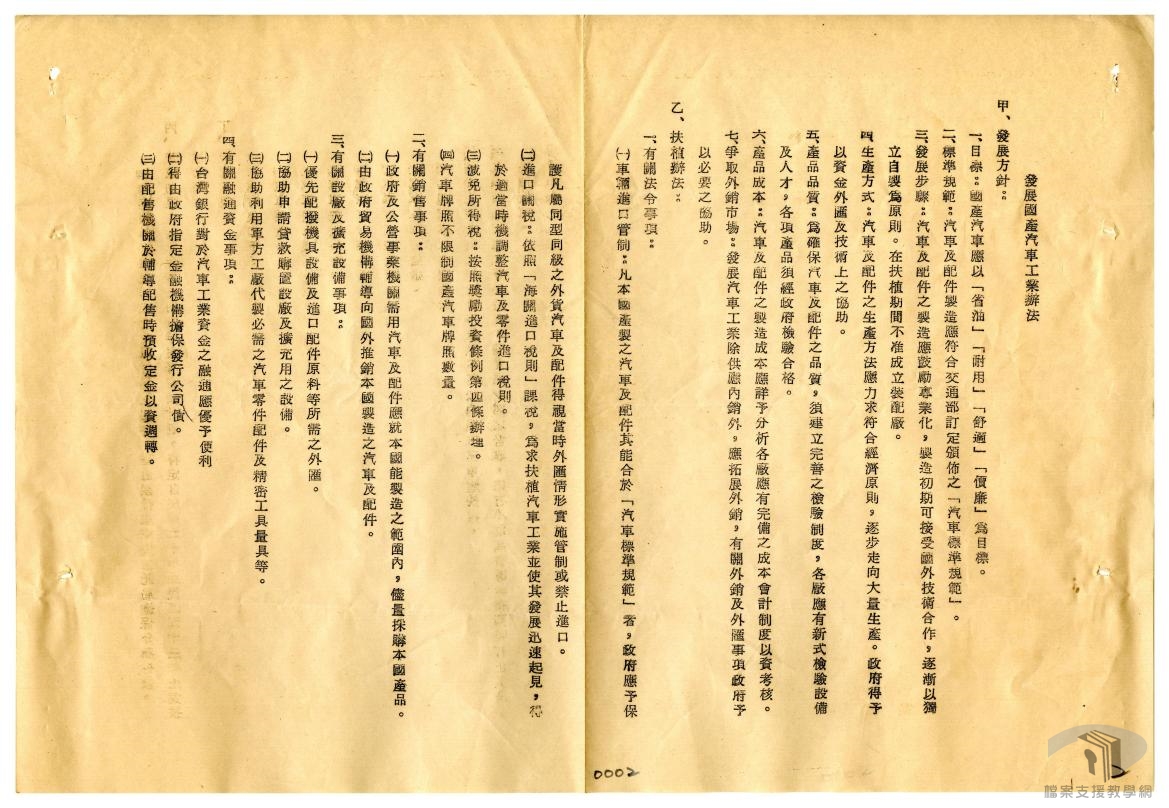 發展國產汽車工業辦法
甲、發展方針：
一、目標：國產汽車應以「省油」「耐用」「舒適」「價廉」為目標。
二、標準規範：汽車及配件製造應符合交通部訂定頒佈之「汽車標準規範」。
三、發展步驟：汽車及配件之製造應鼓勵專業化，製造初期可接受國外技術合作，逐漸以獨
立自製為原則。在扶植期間不准成立裝配廠。
四、生產方式：汽車及配件之生產方法應力求符合經濟原則，逐步走向大量生產。政府得予
以資金外匯及技術上之協助。
五、產品品質：為確保汽車及配件之品質，須建立完善之檢驗制度，各廠應有新式檢驗設備
及人才，各項產品須經政府檢驗合格。
六、產品成本：汽車及配件之製造成本應詳予分析各廠應有完備之成本會計制度以資考核。
七、爭取外銷市場：發展汽車工業除供應內銷外，應拓展外銷，有關外銷及外匯事項政府予
以必要之協助。
乙、扶植辦法：
一、有關法令事項：
㈠車輛進口管制：凡本國產製之汽車及配件其能合於「汽車標準規範」者，政府應予保
護凡屬同型同級之外貨汽車及配件得視當時外匯情形實施管制或禁止進口。
㈡進口關稅：依照「海關進口稅則」課稅，為求扶植汽車工業並使其發展迅速起見，得
於適當時機調整汽車及零件進口稅則。
㈢減免所得稅：按照獎勵投資條例第四條辦理。
㈣汽車牌照不限制國產汽車牌照數量。
二、有關銷售事項：
㈠政府及公營事業機關需用汽車及配件應就本國能製造之範圍內，儘量採購本國產品。
㈡由政府貿易機構輔導向國外推銷本國製造之汽車及配件。
三、有關設廠及擴充設備事項：
㈠優先配撥機具設備及進口配件原料等所需之外匯。
㈡協助申請貸款購置設廠及擴充用之設備。
㈢協助利用軍方工廠代製必需之汽車零件配件及精密工具量具等。
四、有關融通資金事項：
㈠台灣銀行對於汽車工業資金之融通應優予便利
㈡得由政府指定金融機構擔保發行公司債。
㈢由配售機關於輔導配售時預收定金以資週轉。
0002
檔案支援教學網